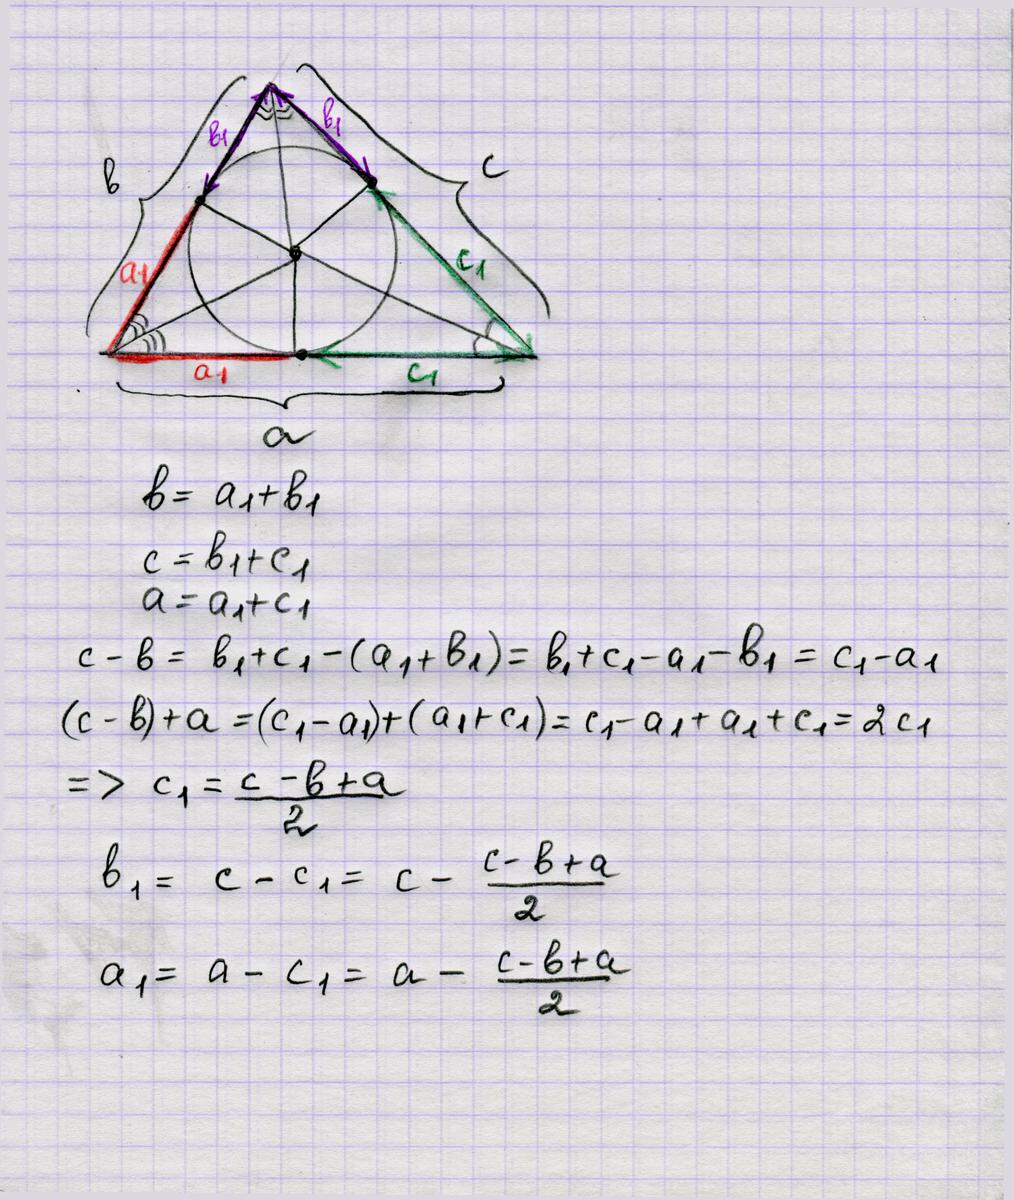 в1
в1
в
c
a1
c1
a1
c1
a
в = a1+в1
c = в1+c1
a = a1+c1
c - в = в1+c1-(a1+в1) = в1+c1-a1-в1 = c1-a1
(c-в)+a = (c1-a1)+(a1+c1) = c1-a1+a1+c1 = 2c1
=> c1 = (c-в+a)/2
в1 = c - c1 = c - (c-в+a)/2
a1 = a - c1 = a - (c-в+a)/2